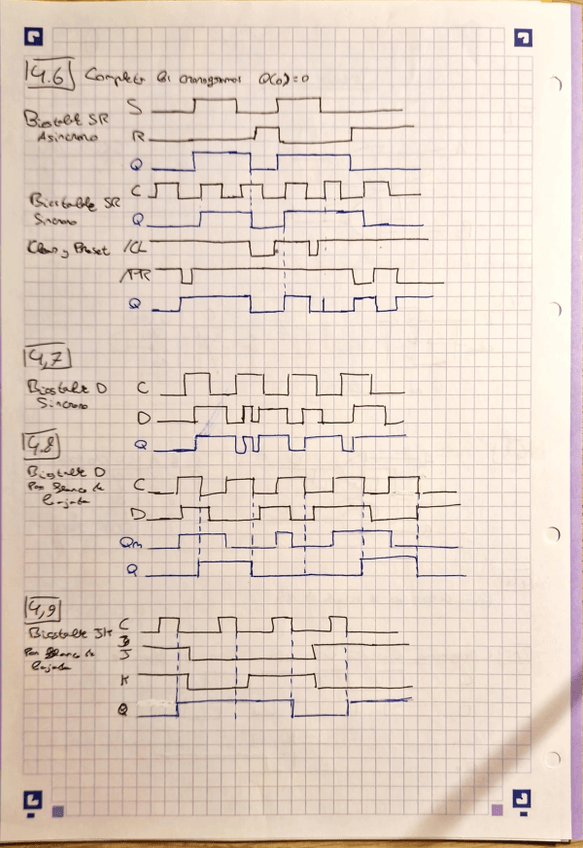 4.6 Completar los cronogramas Q(0)=0
S
Biestable SR
R
Asíncrono
Q
C
Biestable SR
Síncrono
Q
Clear y Preset /CL
/PR
Q
4,7
Biestable D C
Síncrono
D
4.8
Q
Biestable D
C
Por flanco de
bajada
D
Qm
Q
4,9
C
Biestable JK
J
Por flanco de
bajada
K
Q